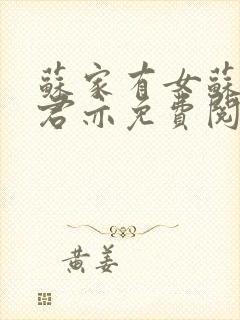 蘇家有女蘇
君亦免費閱
黃姜